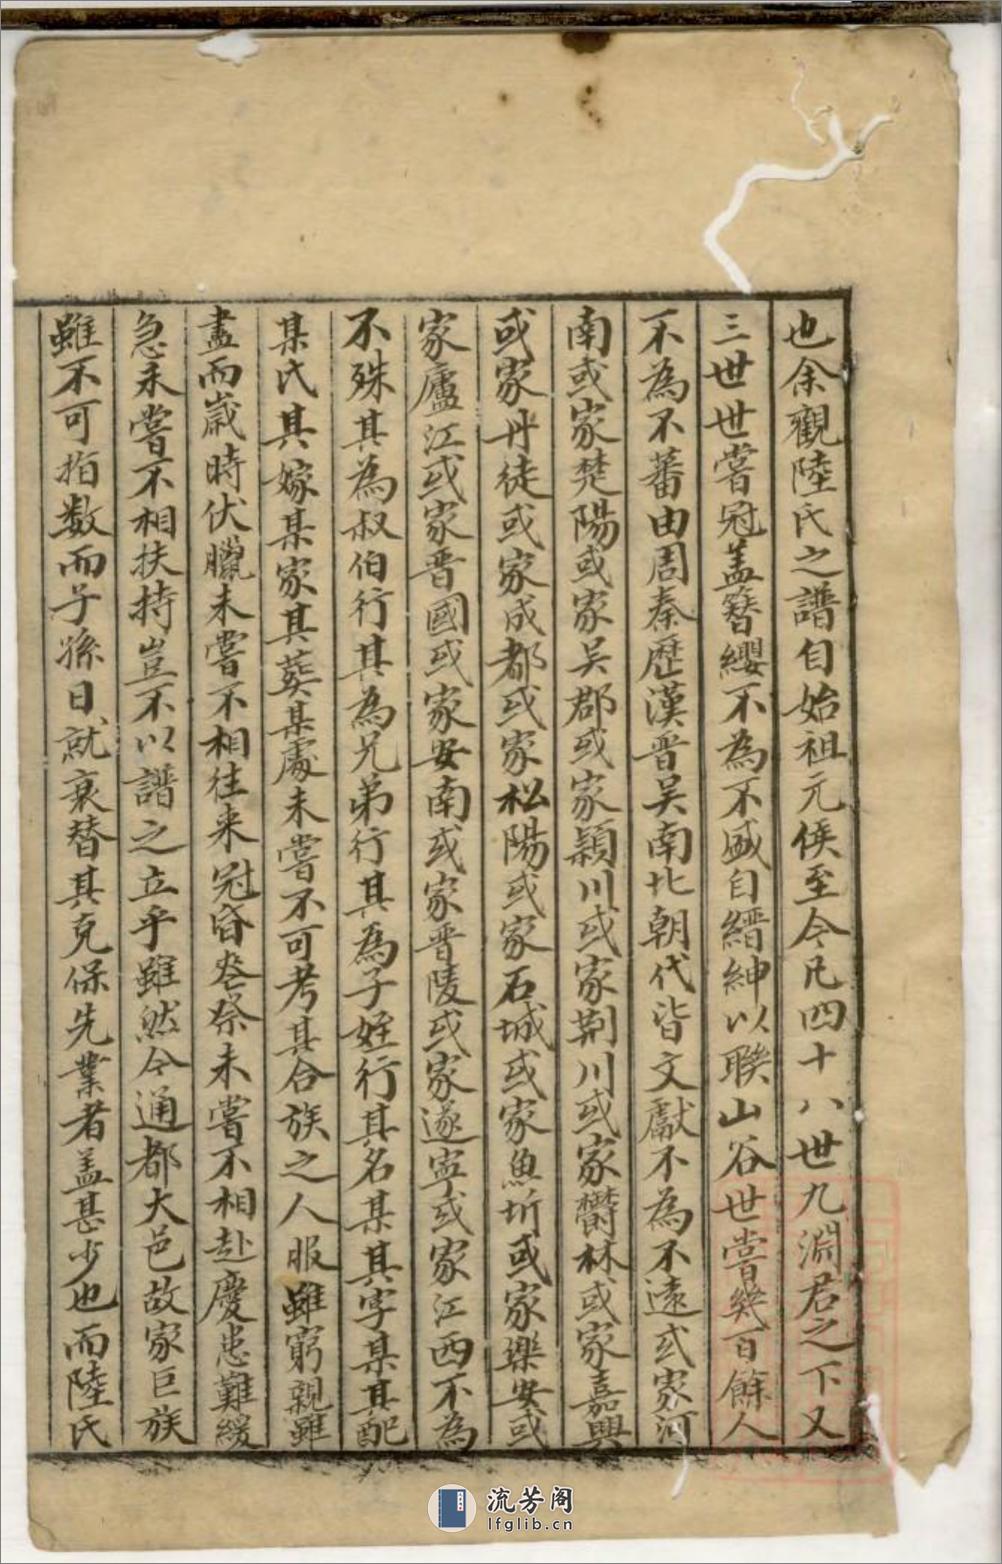 也余觀陸氏之譜自始祖元侯至今凡四十八世九淵君之下又
三世世嘗冠盖簪纓不為不盛自縉紳以聯山谷世嘗幾百餘人
不為不蕃由周秦歷漢晋吴南北朝代皆文獻不為不遠或家河
南或家楚陽或家吴郡或家穎川或家荆川或家欝林或家嘉興
或家丹徒或家成都或家松陽或家石城或家魚圻或家樂安或
家廬江或家晋國或家安南或家晋陵或家遂寜或家江西不為
不殊其為叔伯行其為兄弟行其為子姪行其名某其字某其配
某氏其嫁某家其葵某處未嘗不可考其合族之人服雖窮親雖
盡而歲時伏臘未嘗不相往来冠昏喪祭未嘗不相赴慶患難緩
急未嘗不相扶持豈不以譜之立乎雖然今通都大邑故家巨族
雖不可指数而子孫日就衰替其克保先業者盖甚少也而陸氏
流芳阁
lfglib.cn